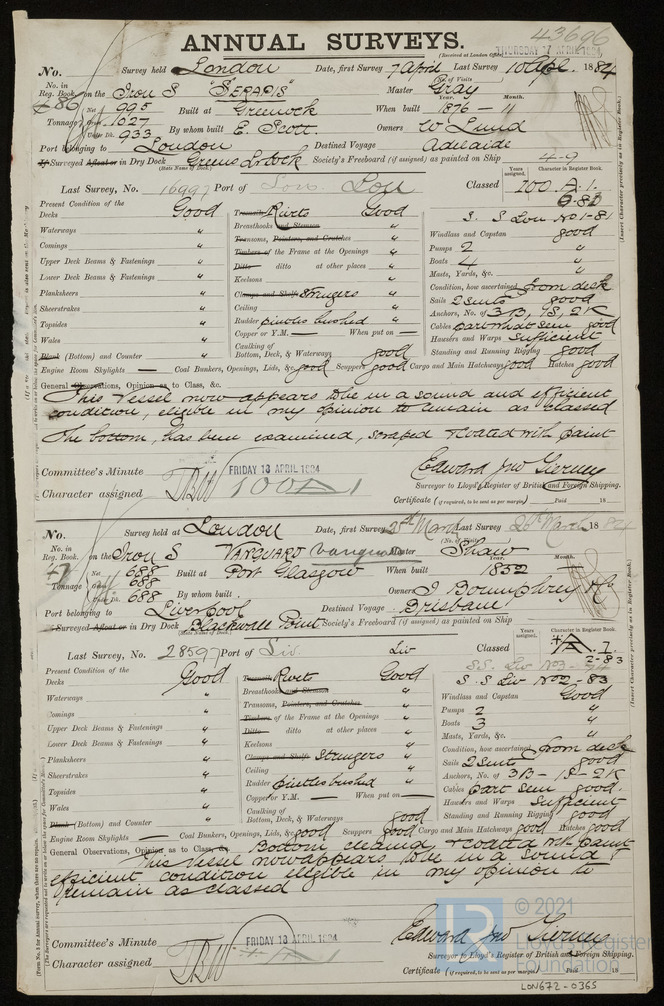 43696
ANNUAL SURVEYS.
(Received at London Office THURSDAY 17 APRIL 1884
No. Survey held London Date, first Survey 7 April Last Survey 10 Apl. 1884
(No. of Visits
No. in Reg. Book on the Iron S "SERAPIS" Master Gray
486
Tonnage Net 995 Built at Greenock When built Year. 1876 - Month. 11
Gross 1027
Under Dk. 933 By whom built E. Scott Owners W Lund
Port belonging to London Destined Voyage Adelaide
If Surveyed Afloat or in Dry Dock Greens Lr Dock Society's Freeboard (if assigned) as painted on Ship 4-9
(State Name of Dock.)
Last Survey, No. 16997 Port of Lon Lon Classed Years assigned. 100 Character in Register Book. A. 1.
S. S Lon No 1-81
Present Condition of the
Decks Good
Waterways "
Comings "
Upper Deck Beams & Fastenings "
Lower Deck Beams & Fastenings "
Planksheers "
Sheerstrakes "
Topsides "
Wales "
Blank (Bottom) and Counter "
Treenails Rivets Good
Breasthooks and Stemson "
Transoms, Pointers, and Crutches "
Timbers of the Frame at the Openings "
Ditto ditto at other places "
Keelsons "
Clamps and Shelfs Stringers "
Ceiling "
Rudder pintles bushed "
Copper or Y.M. — When put on —
Caulking of Bottom, Deck, & Waterways good
Windlass and Capstan good
Pumps 2 "
Boats 4 "
Masts, Yards, &c. "
Condition, how ascertained from deck
Sails 2 suits good
Anchors, No. of 3B, 1S, 2K
Cables part what seen good
Hawsers and Warps Sufficient
Standing and Running Rigging good
Engine Room Skylights — Coal Bunkers, Openings, Lids, &c. good Scuppers good Cargo and Main Hatchways good Hatches good
General Observations, Opinion as to Class, &c.
This Vessel now appears to be in a sound and efficient
condition, eligible in my opinion to remain as classed
The bottom, has been examined, scraped & coated with paint
Committee's Minute FRIDAY 18 APRIL 1884
Character assigned 100A1
Surveyor to Lloyd's Register of British and Foreign Shipping.
Certificate (if required, to be sent as per margin) Paid 18
No. Survey held at London Date, first Survey March Last Survey 20th March 1884
(No. of Visits
No. in Reg. Book on the Iron S VANGUARD Vanguard Master Shaw
47
Tonnage Net 688 Built at Port Glasgow When built Year. 1852 Month.
Gross 688
Under Dk. 688 By whom built Owners J Boumphrey
Port belonging to Liverpool Destined Voyage Brisbane
If Surveyed Afloat or in Dry Dock Blackwall Point Society's Freeboard (if assigned) as painted on Ship
(State Name of Dock.)
Last Survey, No. 28597 Port of Liv. Liv Classed Years assigned. Character in Register Book. A. 1.
2-83
S. S Liv No 2-83
Present Condition of the
Decks Good
Waterways "
Comings "
Upper Deck Beams & Fastenings "
Lower Deck Beams & Fastenings "
Planksheers "
Sheerstrakes "
Topsides "
Wales "
Blank (Bottom) and Counter "
Treenails Rivets Good
Breasthooks and Stemson "
Transoms, Pointers, and Crutches "
Timbers of the Frame at the Openings "
Ditto ditto at other places "
Keelsons "
Clamps and Shelfs Stringers "
Ceiling "
Rudder pintles bushed "
Copper or Y.M. — When put on —
Caulking of Bottom, Deck, & Waterways good
Windlass and Capstan Good
Pumps 2 "
Boats 3 "
Masts, Yards, &c. "
Condition, how ascertained from deck
Sails 2 suit good
Anchors, No. of 3B - 1S - 2K
Cables part seen good
Hawsers and Warps Sufficient
Standing and Running Rigging good
Engine Room Skylights — Coal Bunkers, Openings, Lids, &c. good Scuppers good Cargo and Main Hatchways good Hatches good
General Observations, Opinion as to Class, &c. Bottom cleaned & coated with paint
This Vessel now appears to be in a sound &
efficient condition eligible in my opinion to
remain as classed
Committee's Minute FRIDAY 18 APRIL 1884
Character assigned
Surveyor to Lloyd's Register of British and Foreign Shipping.
Certificate (if required, to be sent as per margin) Paid 18
© 2021
Lloyd's Register
Foundation
LON672-0365